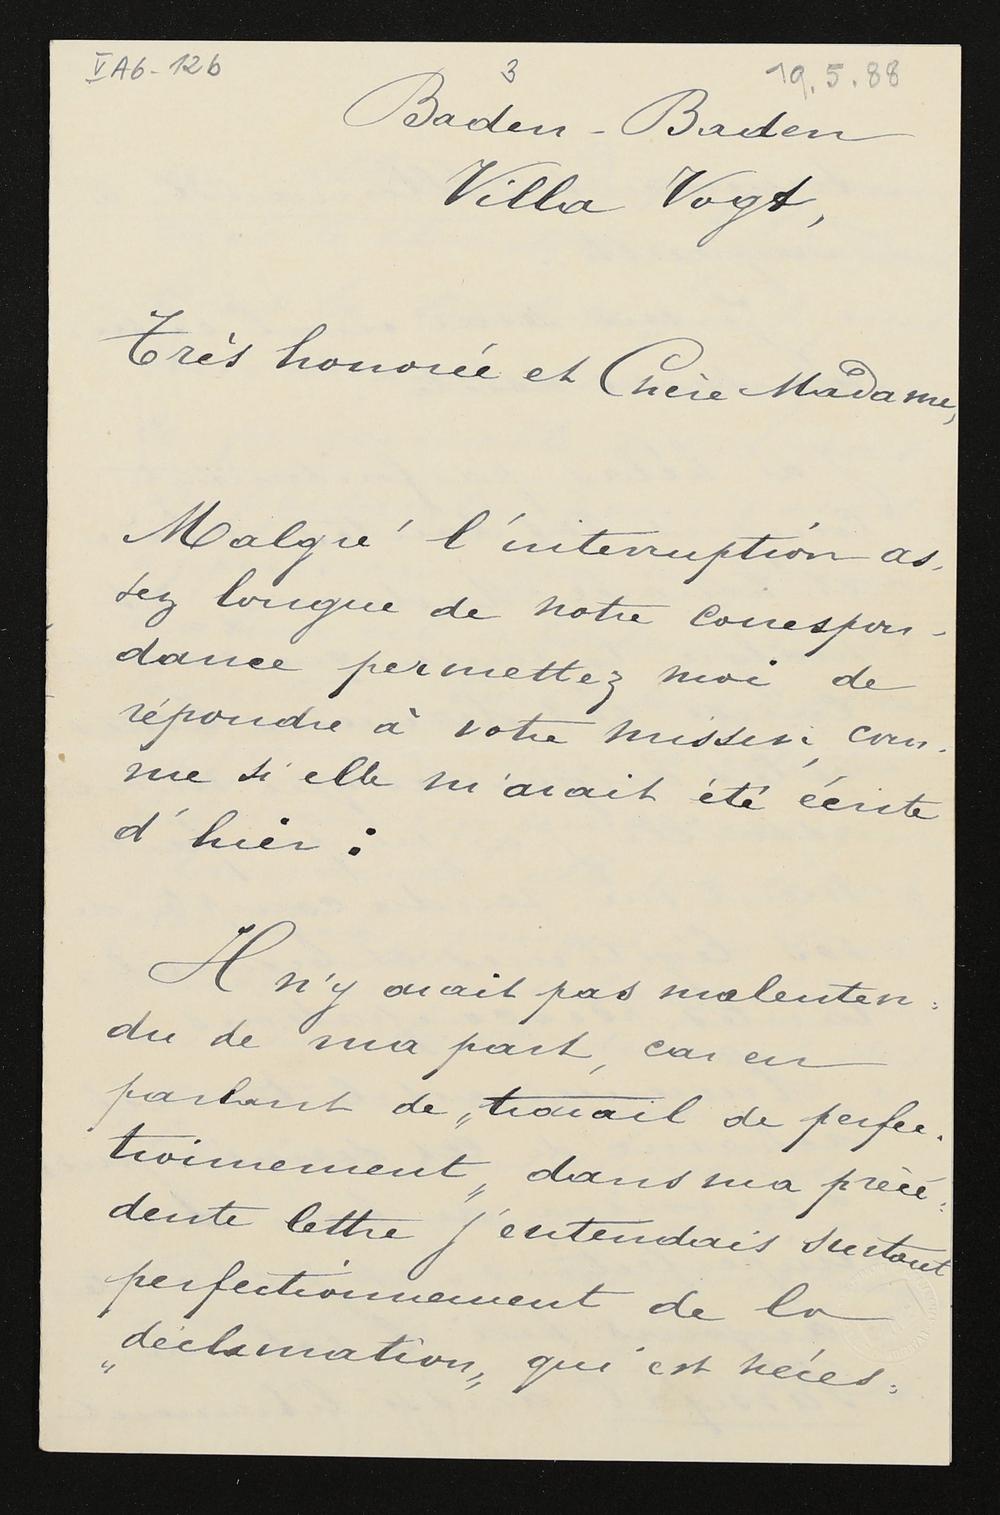 V A6-126
3
19.5.88
Baden-Baden
Villa Vogt,
Très honorée et Chère Madame,
Malgré l'interruption as-
sez longue de notre correspon-
dance permettez moi de
répondre à votre missive, com-
me si elle m'avait été écrite
d'hier :
Il n'y avait pas malenten-
du de ma part, car en
parlant de „travail de perfec-
tionnement„ dans ma précé-
dente lettre j'entendais surtout
perfectionnement de la
„déclamation„ qui est néces-